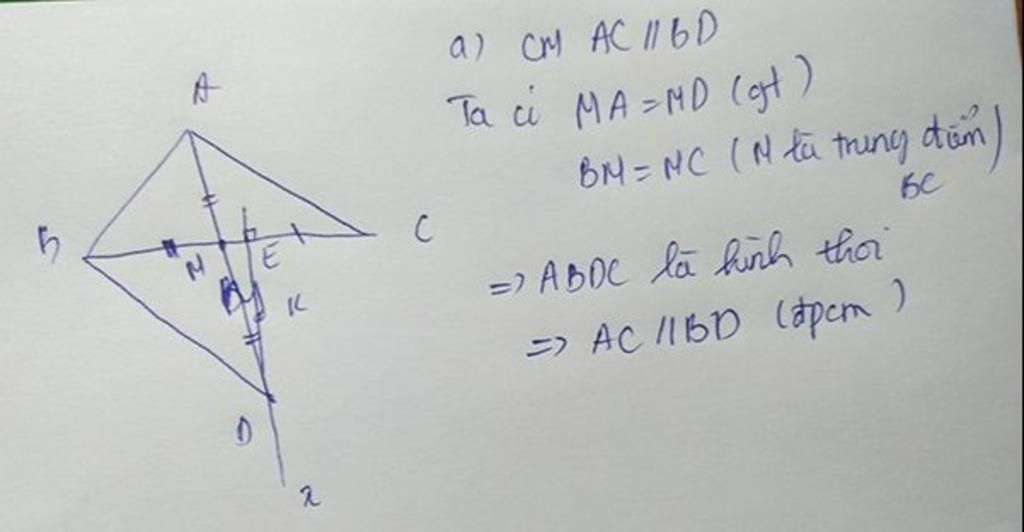 a) CM AC // BD
Ta có MA = MD (gt)
BM = MC (M là trung điểm
BC)
=> ABDC là hình thoi
=> AC // BD (đpcm)
A
B
M
E
C
K
D
x